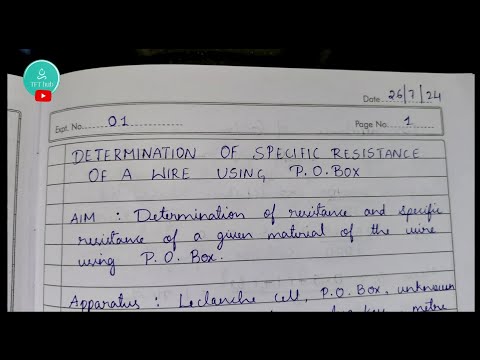 TFT hub
Date 26/7/24
Expt. No. 01
Page No. 1
DETERMINATION OF SPECIFIC RESISTANCE
OF A WIRE USING P.O.BOX
AIM : Determination of resistance and specific
resistance of a given material of the wire
using P.O. Box.
Apparatus : Leclanche cell, P.O. Box, unknown
key, metre